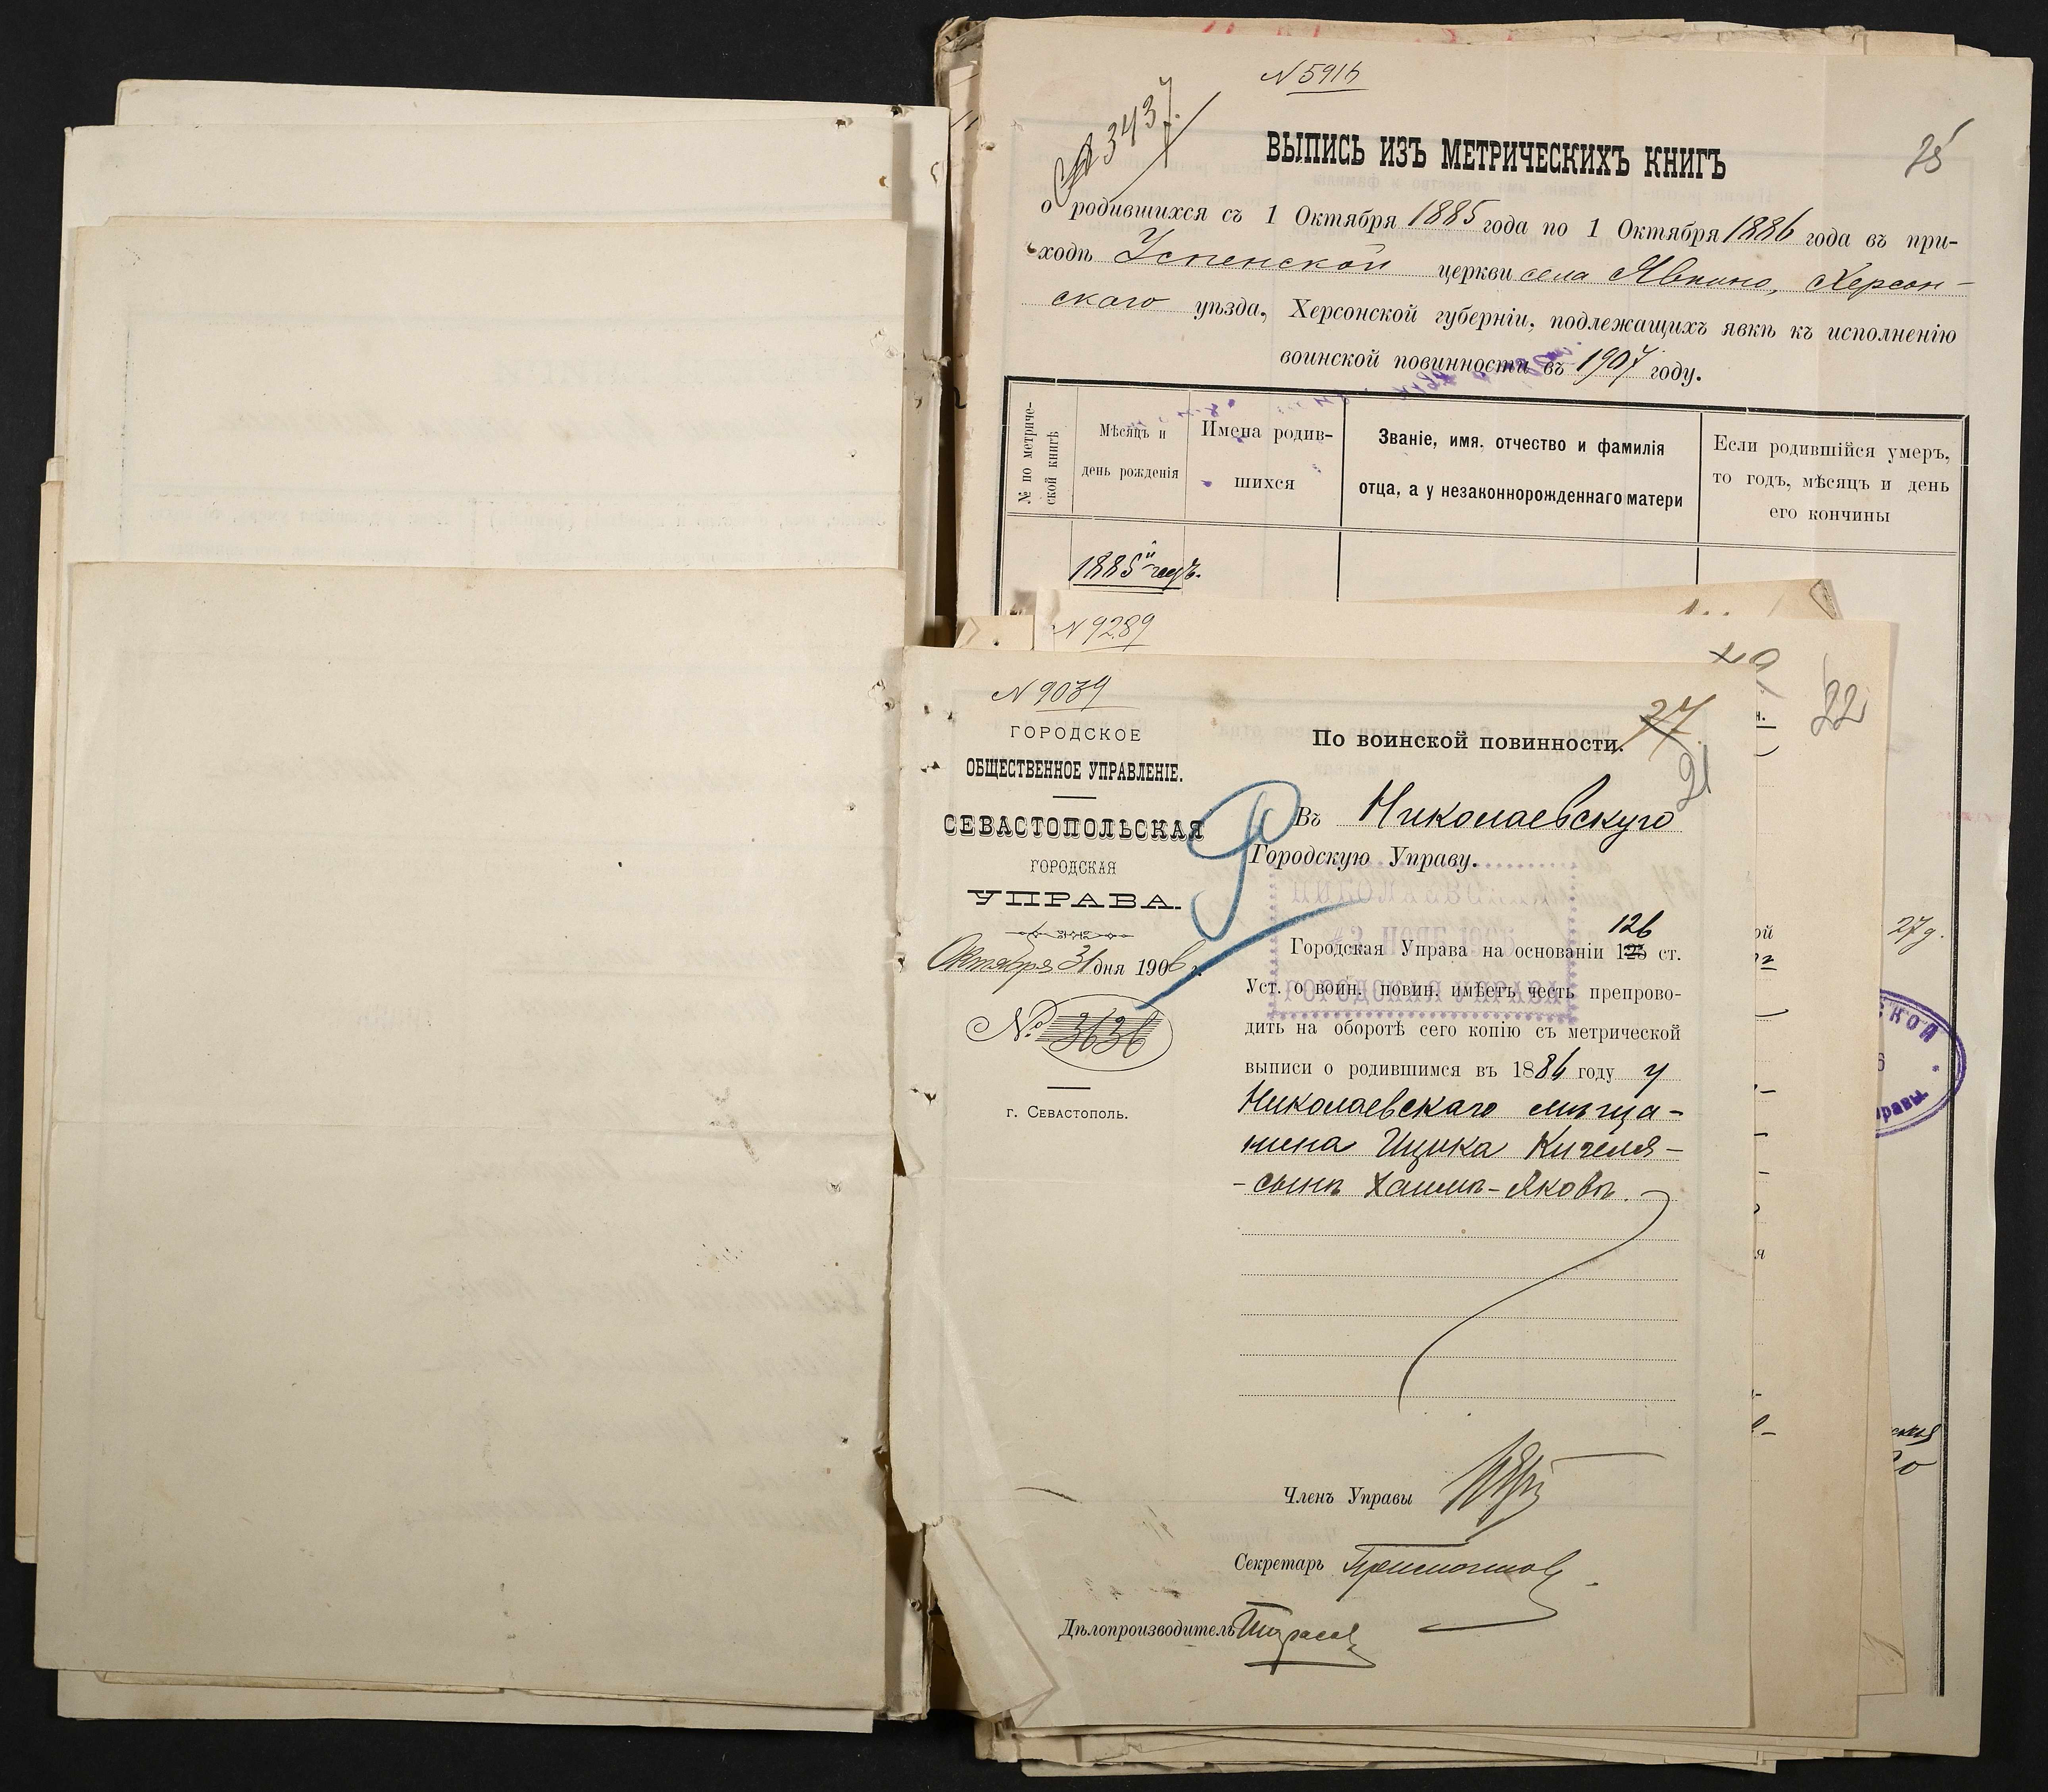 N 5916
№ 3437.
25
ВЫПИСЬ ИЗЪ МЕТРИЧЕСКИХЪ КНИГЪ
о родившихся съ 1 Октября 1885 года по 1 Октября 1886 года въ при-
ходѣ Успенской церкви села Явкино, Херсон-
ского уѣзда, Херсонской губерніи, подлежащихъ явкѣ къ исполненію
воинской повинности въ 1907 году.
№ по метриче-
ской книгѣ
Мѣсяцъ и
день рожденія
Имена родив-
шихся
Званіе, имя, отчество и фамилія
отца, а у незаконнорожденнаго матери
Если родившійся умеръ,
то годъ, мѣсяцъ и день
его кончины
1885й годъ.
N 9289
22
N 9039
ГОРОДСКОЕ
ОБЩЕСТВЕННОЕ УПРАВЛЕНІЕ.
СЕВАСТОПОЛЬСКАЯ
ГОРОДСКАЯ
УПРАВА.
Октября 31 дня 1906 г.
№ 3636
г. Севастополь.
27
21
По воинской повинности.
Въ Николаевскую
Городскую Управу.
126
Городская Управа на основаніи 123 ст.
Уст. о воин. повин. имѣетъ честь препрово-
дить на оборотѣ сего копію съ метрической
выписи о родившимся въ 1886 году у
Николаевскаго мѣща-
нина Ицика Кигеля-
- сынѣ Хаимъ-Яковѣ.
Членъ Управы
Секретарь
Дѣлопроизводитель
27 д.